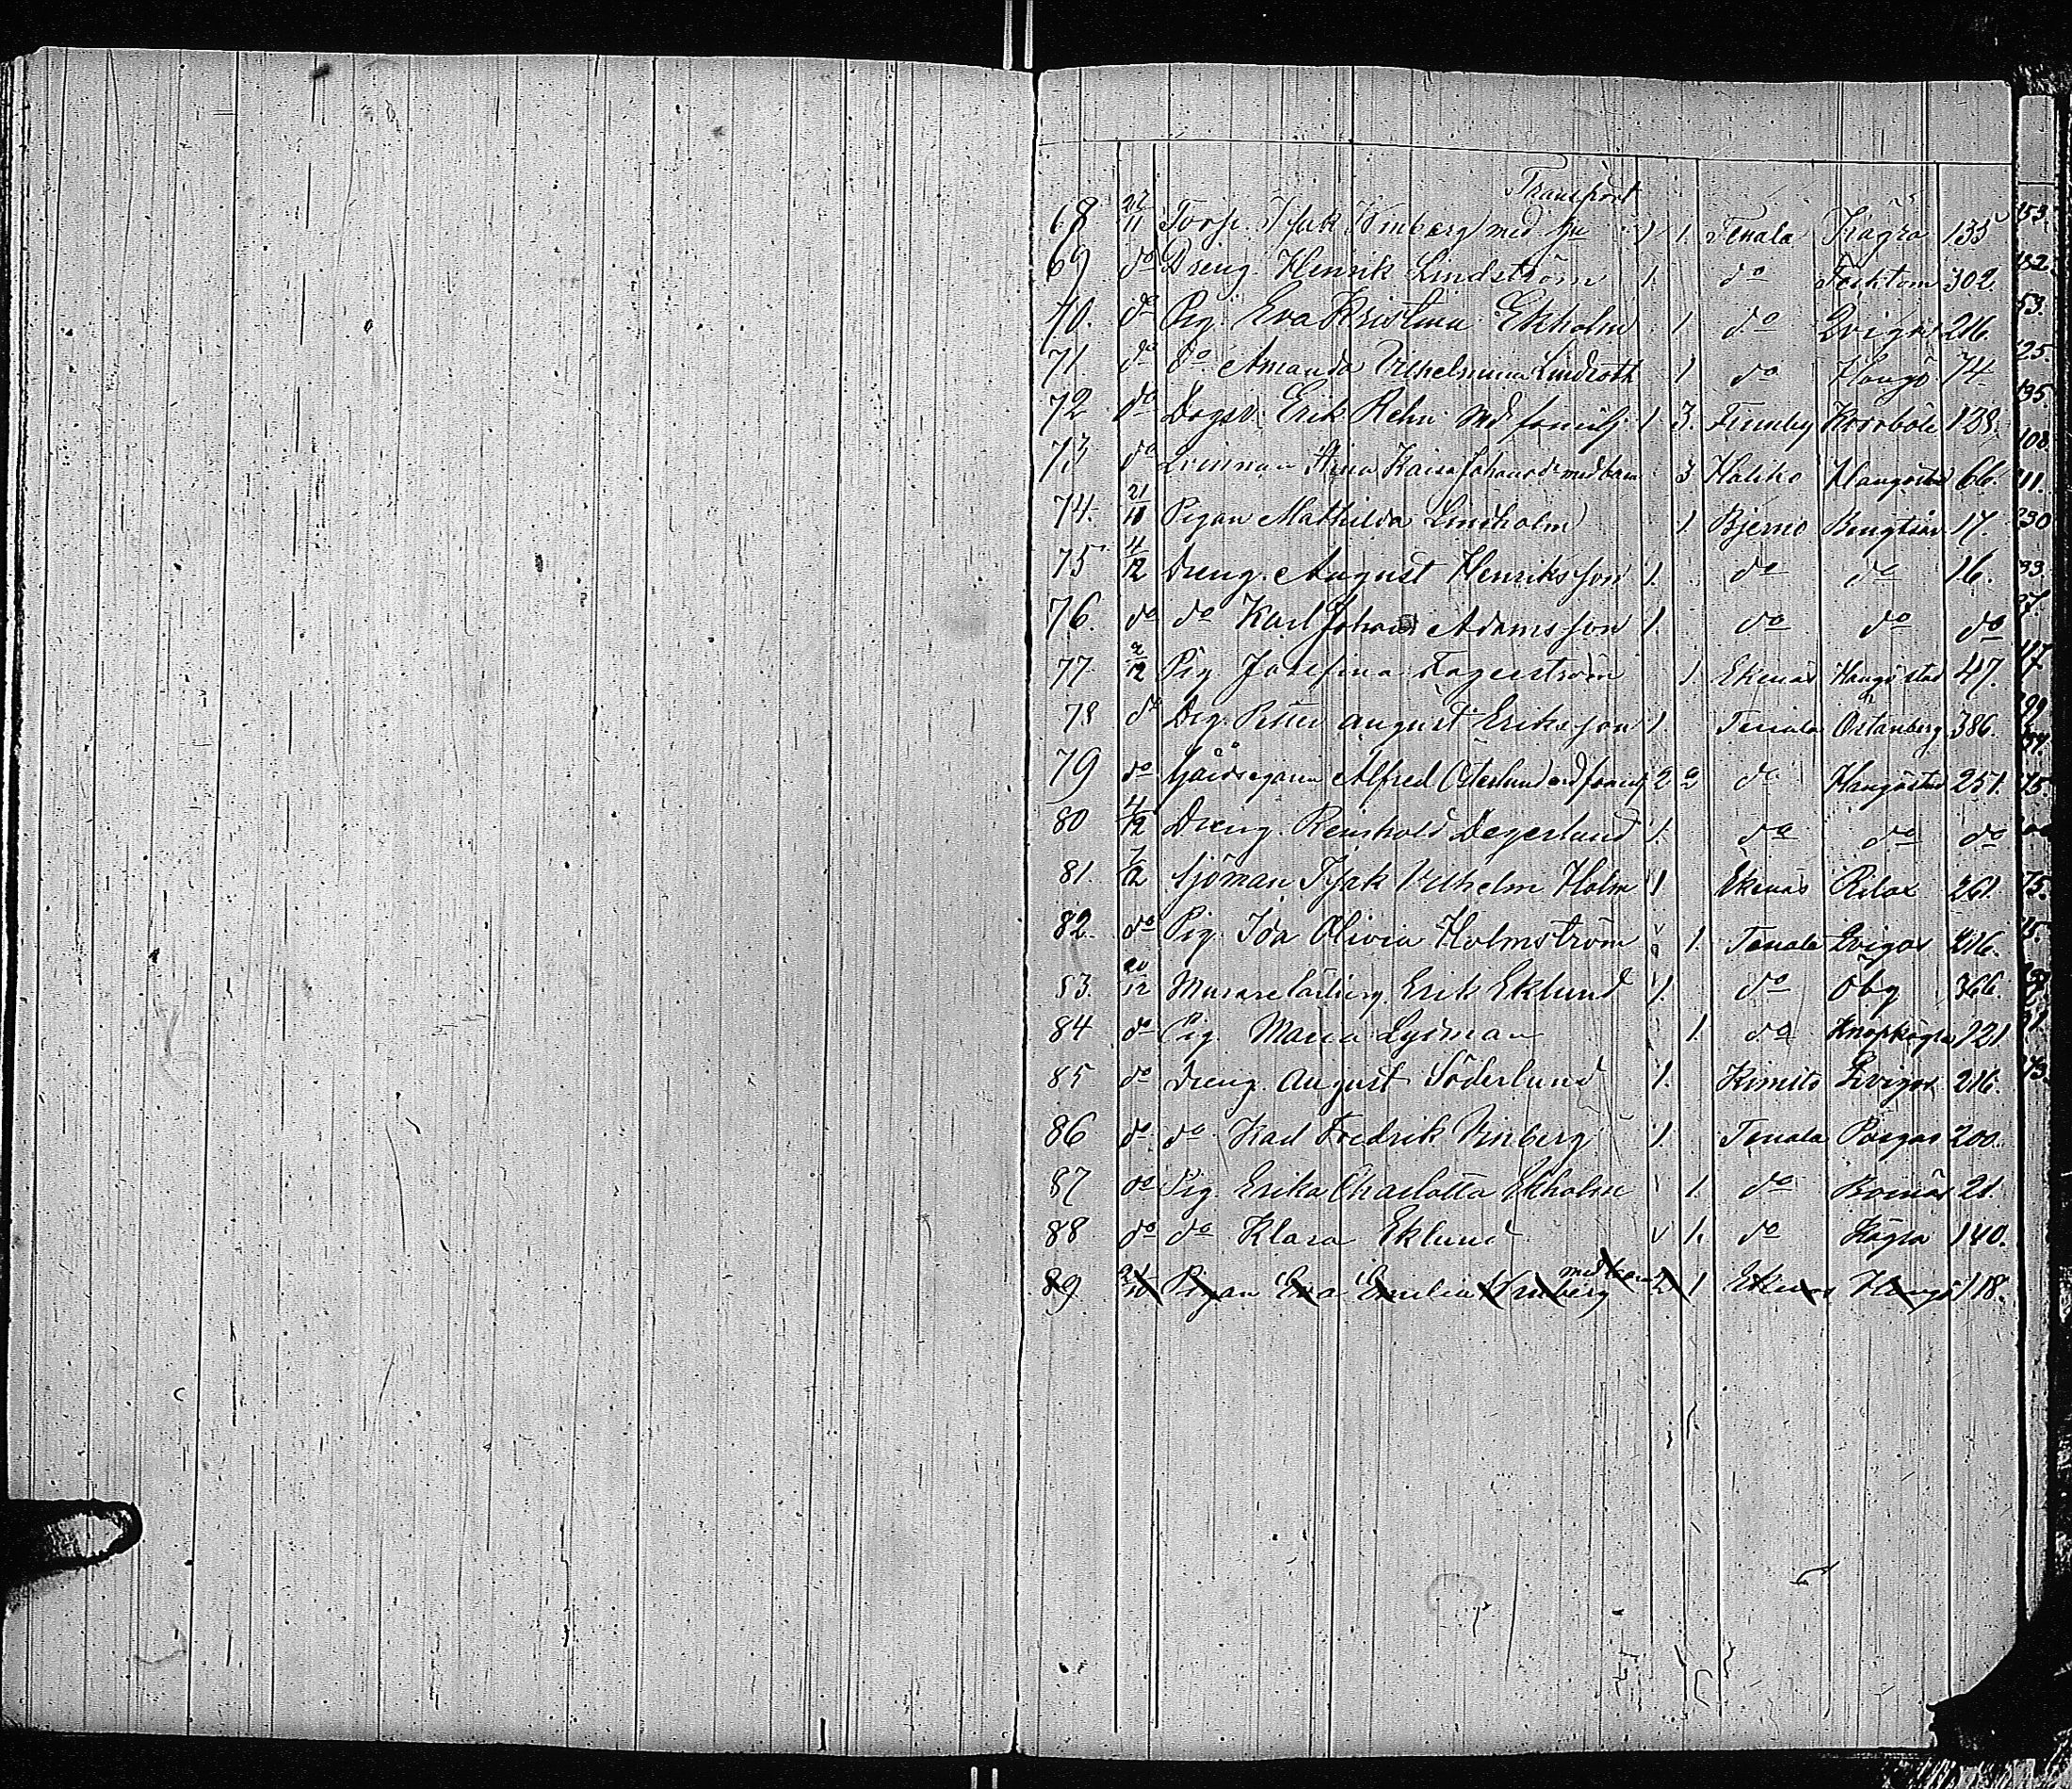 Transport
68 27/11 Torp. Isak Vinberg med hu 1 1. Tenala Kågra 135
69 do Dreng. Henrik Lindström 1. do Täcktom 302
70. do Pig. Eva Kristina Ekholm 1 do Qvigos 216.
71 do do Amanda Vilhelmina Lindroth 1 do Hangö 74.
72 do Dagsv. Erik Rehn med familj 1 3. Finnby Krorböle 138.
73 do Qvinnan Kaisa Johansdr med barn 3 Haliko Hangöstad 66.
74. 21/10 Pigan Mathilda Lindholm 1 Bjerno Bengtsår 17.
75 4/12 Dreng. August Henriksson 1. do do 16.
76. do do Karl Johan Adamsson 1. do do do
77. 2/12 Pig Josefina Fagerström 1. Ekenäs Hangö stad 47.
78 do Drg. Petter August Eriksson 1 Tenala Östanberg 386.
79 do Gårdsegaren Alfred Österlund med familj 2 2 do Hangöstad 251.
80 4/12 Dreng. Reinhold Degerlund 1. do do do
81. 7/12 Sjöman Isak Vilhelm Holm 1 Ekenäs Rilax 261.
82. do Pig. Ida Olivia Holmström 1. Tenala Qvigos 216.
83. 20/12 Murarelärling Erik Eklund 1. do Öby 366.
84 do Pig. Maria Lydman 1. do Knopkägra 121
85 do Dreng. August Söderlund 1. Kimito Qvigos 216.
86 do do Karl Fredrik Vinberg 1. Tenala 200.
87 do Pig. Erika Charlotta Ekholm 1. do Boxnäs 21.
88 do do Klara Eklund 1. do Kågra 140.
89 Pigan Eva Emilia Vinberg med barn 2 1 Ekenäs Hangö 118.